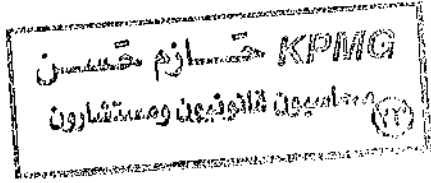 KPMG حـــازم حـســن
محاسبون قانونيون ومستشارون